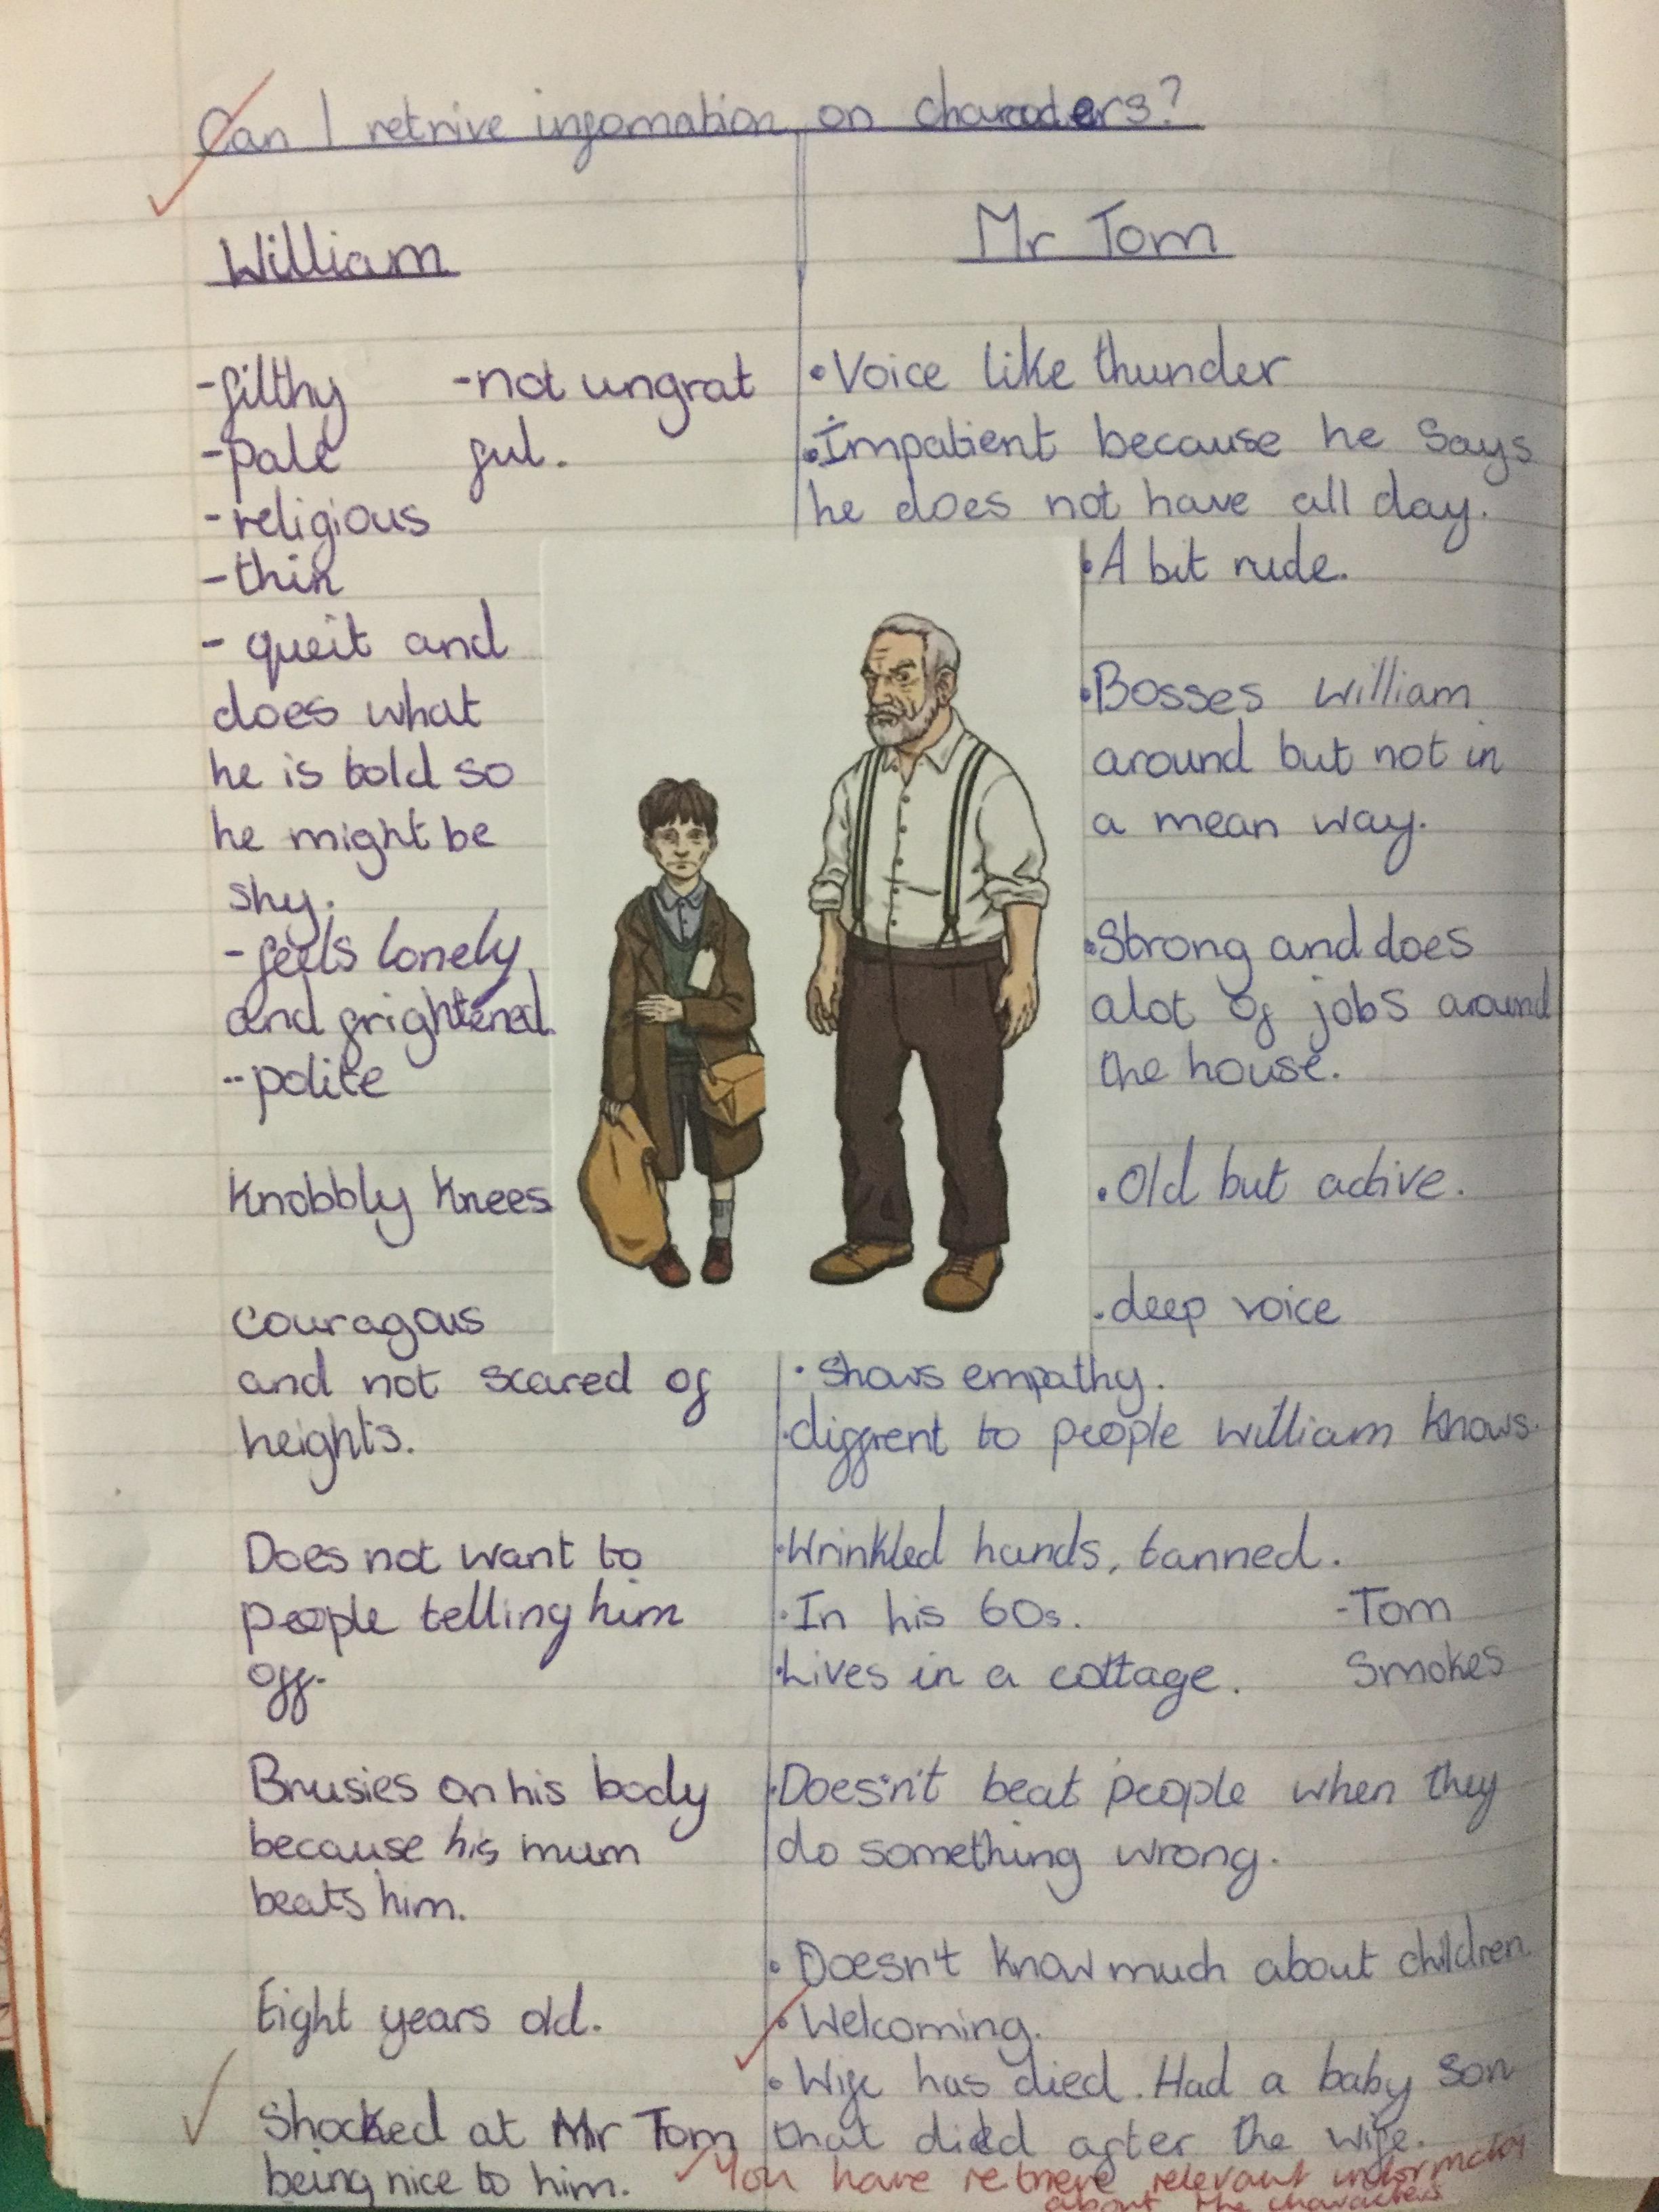 Can I retrive infomation on characters?
William
-filthy
-pale
-religious
-thin
-not ungrat
ful.
- queit and
does what
he is told so
he might be
shy.
-feels lonely
and frightened.
-polite
Knobbly knees
Couragous
and not scared of
heights.
Does not want to
people telling him
off.
Brusies on his body
because his mum
beats him.
Eight years old.
Shocked at Mr Tom
being nice to him.
Mr Tom
•Voice like thunder
•Impatient because he says
he does not have all day.
•A bit rude.
•Bosses william
around but not in
a mean way.
•Strong and does
alot of jobs around
the house.
•Old but active.
•deep voice
•shows empathy.
•diffrent to people william knows.
•Wrinkled hands, tanned.
•In his 60s.
•Lives in a cottage.
-Tom
smokes
•Doesn't beat people when they
do something wrong.
•Doesn't know much about children
•Welcoming.
•Wife has died. Had a baby son
that died after the wife.
You have retrieve relevant information
about the characters